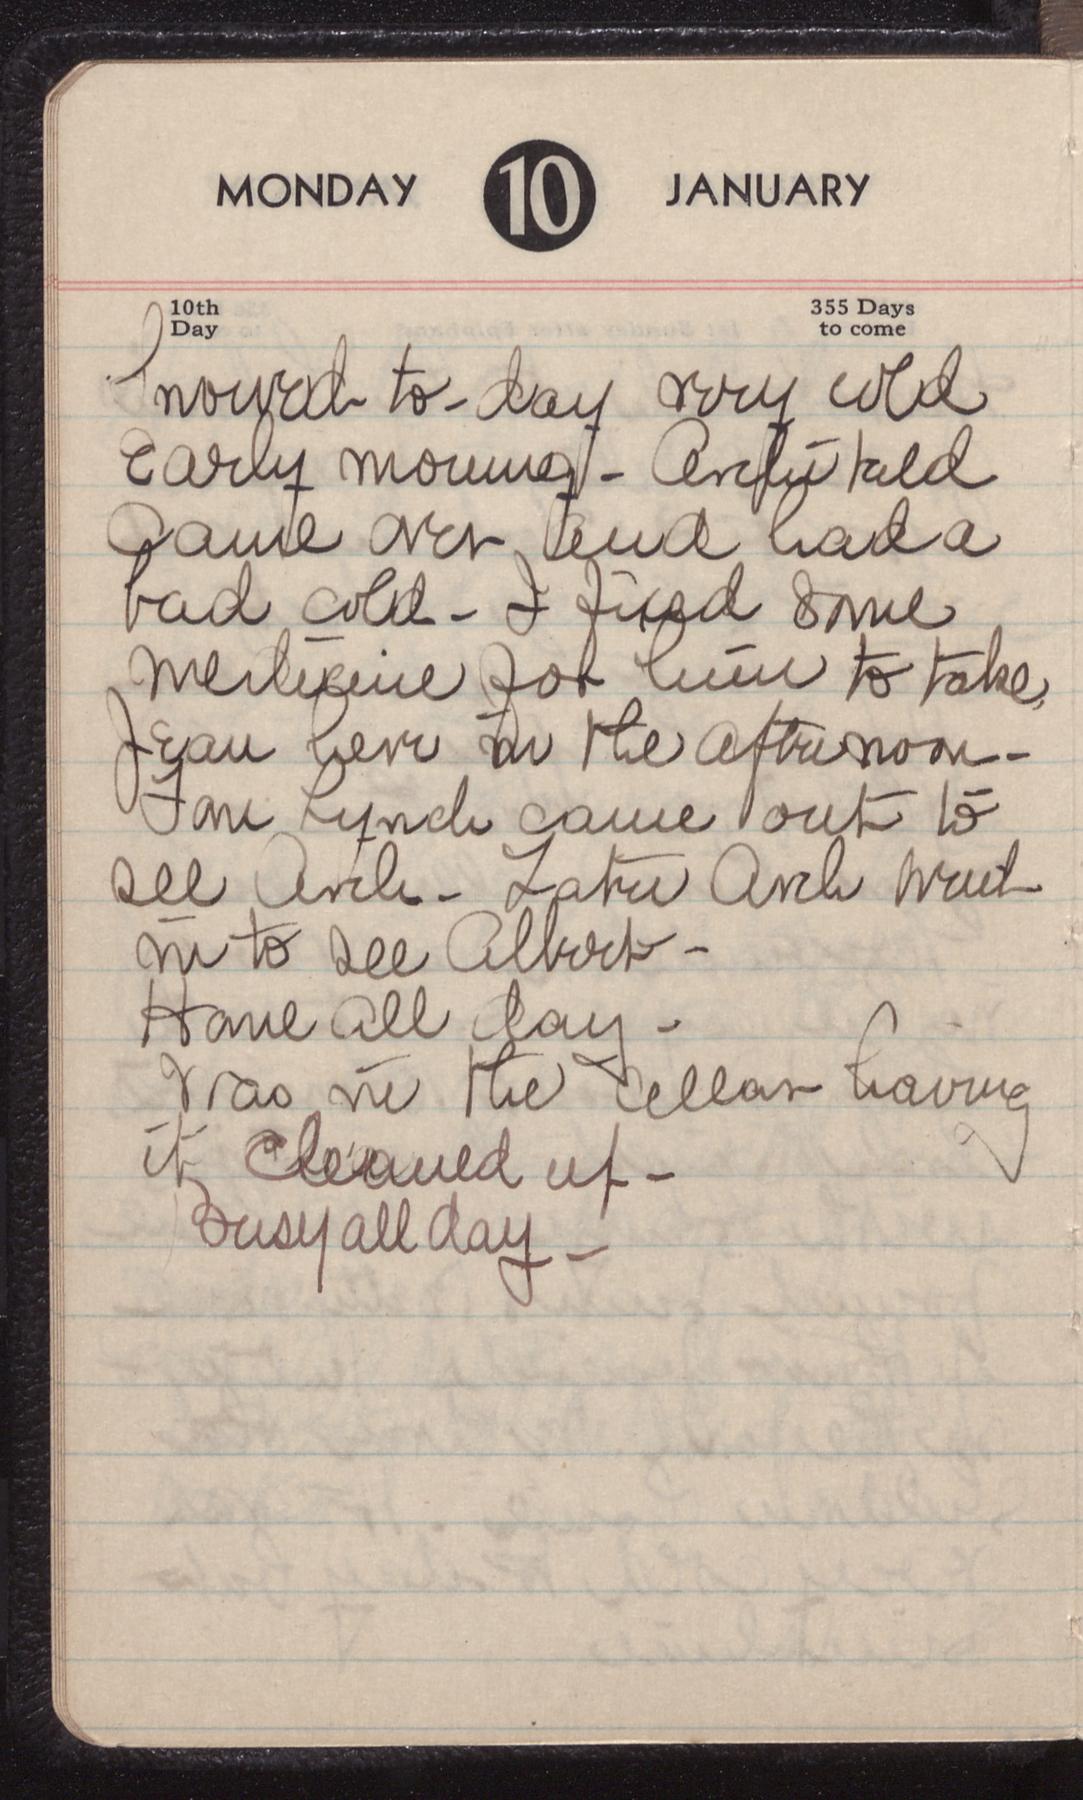 MONDAY 10 JANUARY
10th Day 355 Days to come
Snowed to-day very cold
Early morning -
Came over and had a
bad cold - I fixed some
Medicine for him to take,
Jean here in the afternoon -
Tom Lynch came out to
see Arch - Later Arch went
in to see Albert -
Home all day -
Was in the cellar having
it cleaned up -
Busy all day -